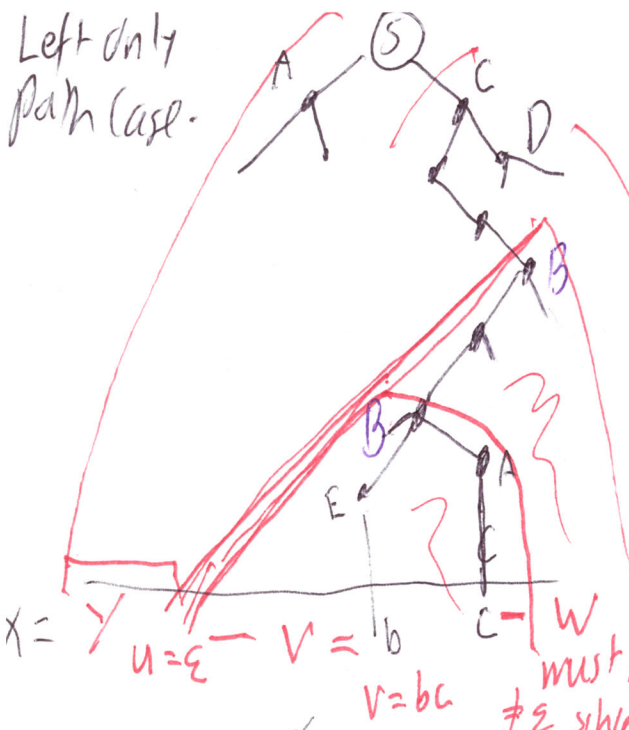 Left Only
Path Case.
S
A
C
D
B
B
A
E
C
X = Y
u=ε V = b C W
V=bc must
≠ε